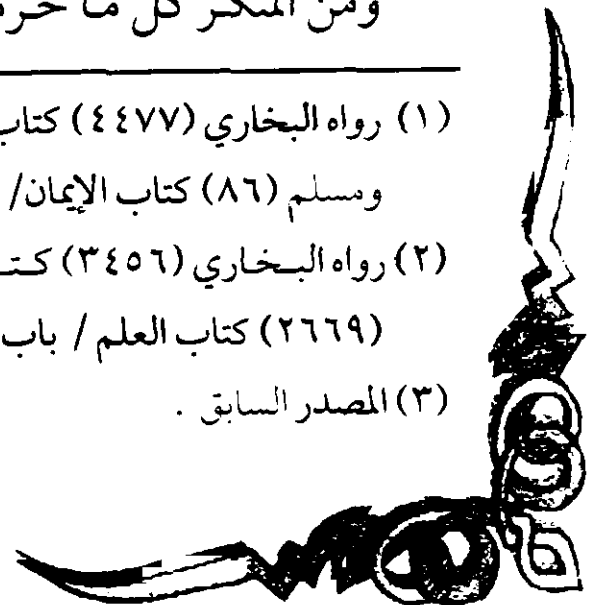 ومن المنكر كل ما حر
(١) رواه البخاري (٤٤٧٧) كتاب
ومسلم (٨٦) كتاب الإيمان/
(٢) رواه البـخـاري (٣٤٥٦) كـتـ
(٢٦٦٩) كتاب العلم / باب
(٣) المصدر السابق .